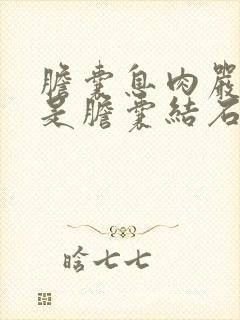 膽囊息肉嚴
是膽囊結石
晗七七